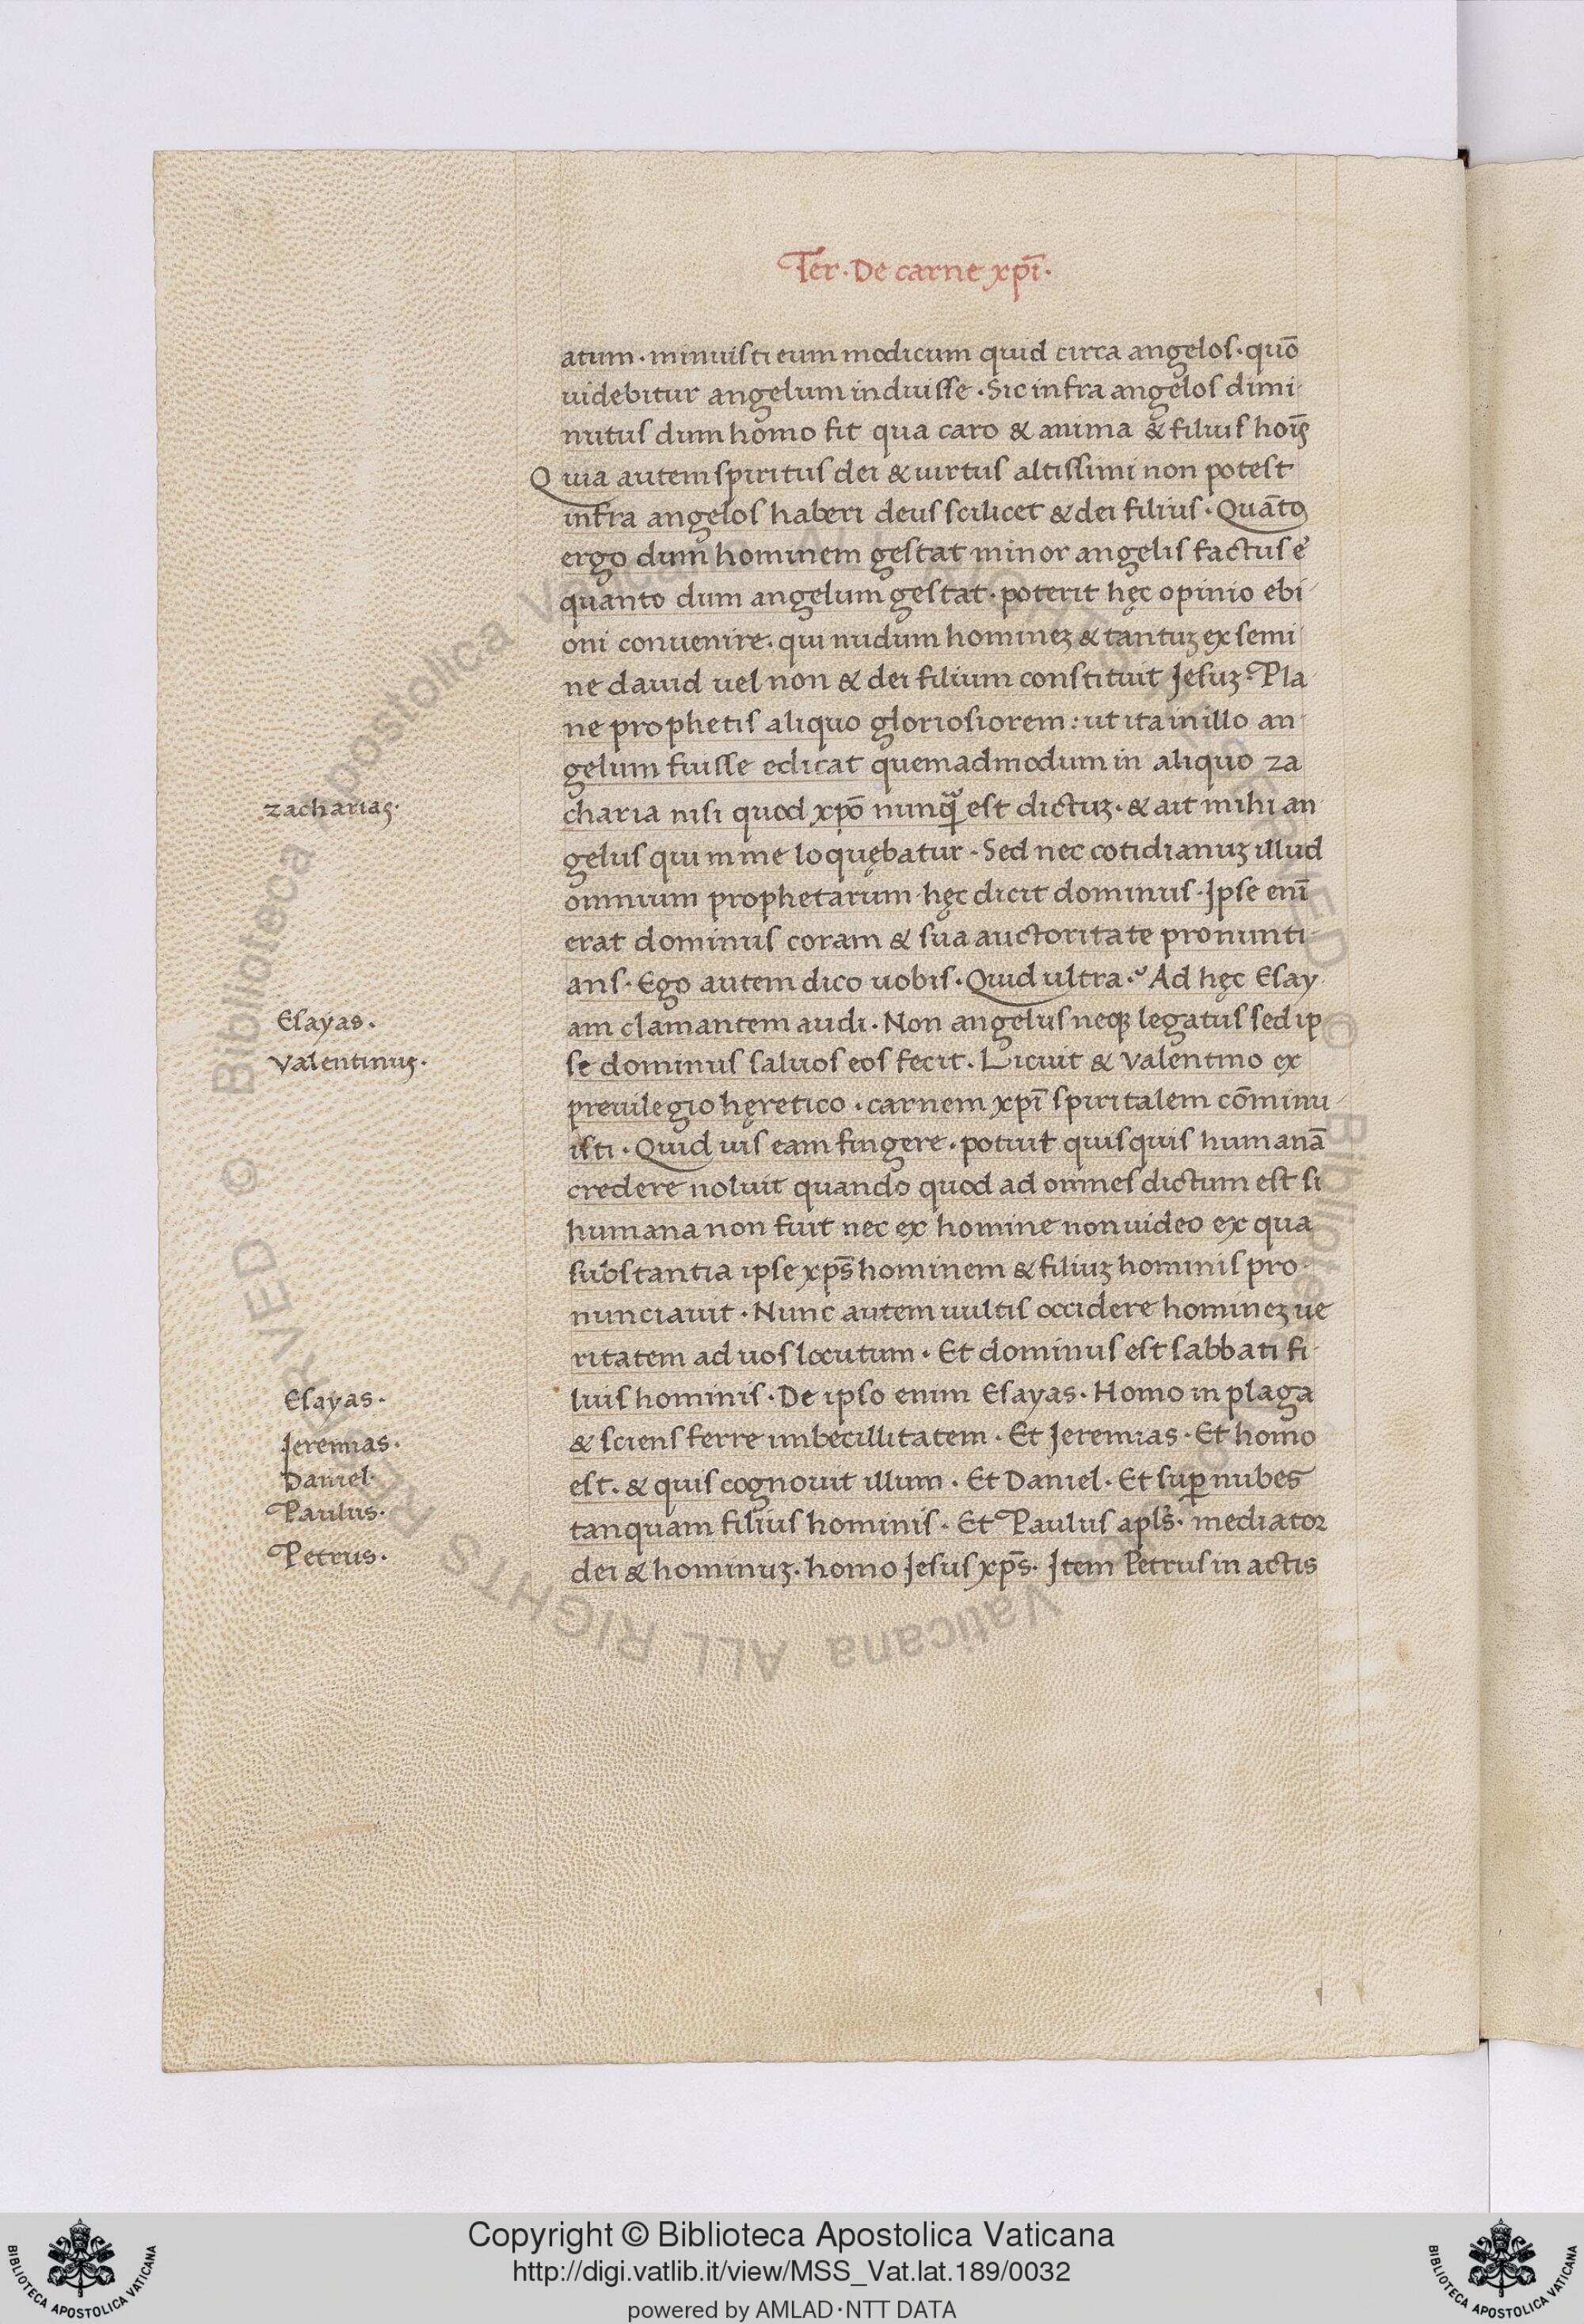 Ter · De carne xp̄i ·
atum · minuisti eum modicum quid circa angelos · quō
uidebitur angelum induisse · Sic infra angelos dimi
nutus dum homo fit qua caro & anima & filius hoīs
Quia autem spiritus dei & uirtus altissimi non potest
infra angelos haberi deus scilicet & dei filius · Quāto
ergo dum hominem gestat minor angelis factus ē
quanto dum angelum gestat · poterit hęc opinio ebi
oni conuenire · qui nudum homineꝫ & tantuꝫ ex semi
ne dauid uel non & dei filium constituit Jesuꝫ · Pla
ne prophetis aliquo gloriosiorem : ut ita in illo an
gelum fuisse edicat quemadmodum in aliquo za
zacharias ·
charia nisi quod xp̄o nunq̃ est dictuꝫ · & ait mihi an
gelus qui in me loquębatur · Sed nec cotidianuꝫ illud
omnium prophetarum hęc dicit dominus · Ipse enī
erat dominus coram & sua auctoritate pronunti
ans · Ego autem dico uobis · Quid ultra ? Ad hęc Esay
Esayas ·
am clamantem audi · Non angelus neqꝫ legatus sed ip
Valentinus ·
se dominus saluos eos fecit · Licuit & Valentino ex
preuilegio hęretico · carnem xp̄i spiritalem cōminu
isti · Quid uis eam fingere · potuit quisquis humanā
credere noluit quando quod ad omnes dictum est si
humana non fuit nec ex homine non uideo ex qua
substantia ipse xp̄s hominem & filiuꝫ hominis pro
nunciauit · Nunc autem uultis occidere homineꝫ ue
ritatem ad uos locutum · Et dominus est sabbati fi
lius hominis · De ipso enim Esayas · Homo in plaga
Esayas ·
& sciens ferre imbecillitatem · Et Jeremias · Et homo
Jeremias ·
est · & quis cognouit illum · Et Daniel · Et suꝑ nubes
Daniel ·
tanquam filius hominis · Et Paulus apl's · mediator
Paulus ·
dei & hominuꝫ · homo Jesus xp̄s · Item Petrus in actis
Petrus ·
© Biblioteca Apostolica Vaticana ALL RIGHTS RESERVED © Biblioteca Apostolica Vaticana ALL RIGHTS RESERVED
Copyright © Biblioteca Apostolica Vaticana
http://digi.vatlib.it/view/MSS_Vat.lat.189/0032
powered by AMLAD·NTT DATA
BIBLIOTECA APOSTOLICA VATICANA
BIBLIOTECA APOSTOLICA VATICANA